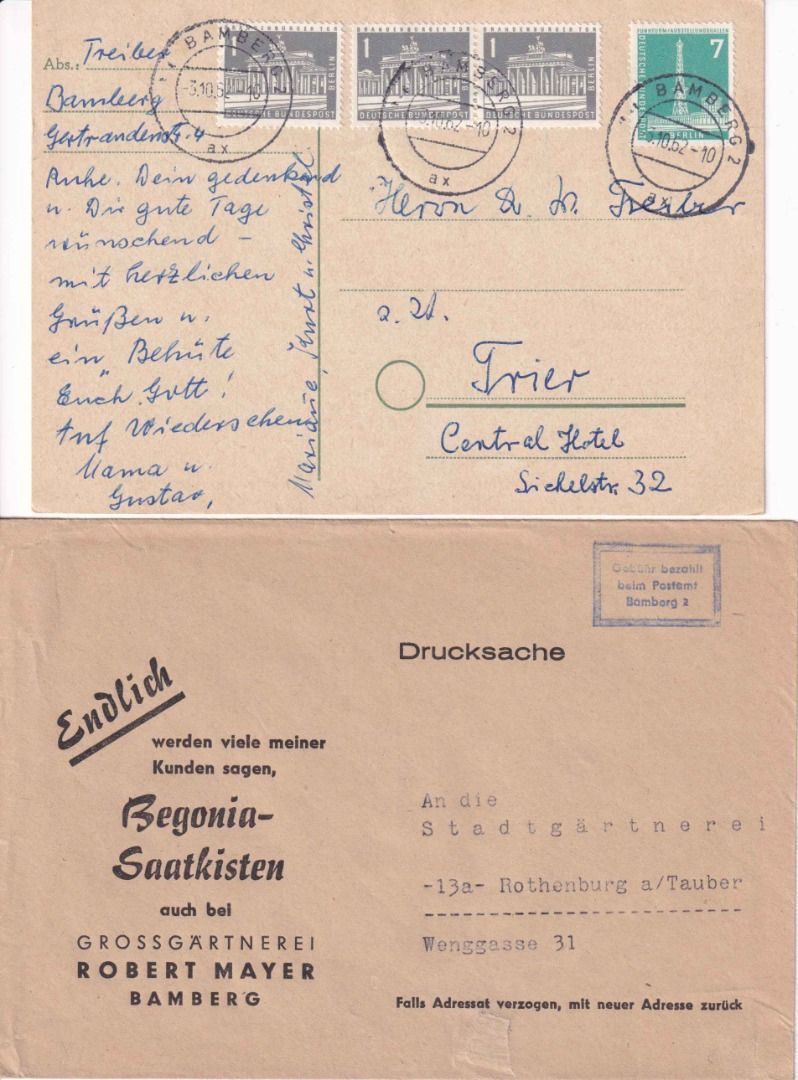 Abs.: Treiber
Bamberg
Gertraudenstr. 4
Ruhe. Dein gedenkend
u. Dir gute Tage
wünschend –
mit herzlichen
Grüßen u.
ein Behüte
Euch Gott!
Auf Wiedersehen
Mama u.
Gustav,
Mariane, Horst u. Christel
BAMBERG 2
-3.10.62-10
ax
1
BRANDENBURGER TOR
BERLIN
DEUTSCHE BUNDESPOST
1
BRANDENBURGER TOR
BERLIN
DEUTSCHE BUNDESPOST
1
BRANDENBURGER TOR
BERLIN
DEUTSCHE BUNDESPOST
BAMBERG 2
-3.10.62-10
ax
7
FUNKTURM·AUSSTELLUNGSHALLEN
DEUTSCHE BUNDESPOST
BERLIN
BAMBERG 2
-3.10.62-10
ax
Herrn Treiber
z. Zt.
Trier
Central Hotel
Sichelstr. 32
Gebühr bezahlt
beim Postamt
Bamberg 2
Drucksache
Endlich
werden viele meiner
Kunden sagen,
Begonia-
Saatkisten
auch bei
GROSSGÄRTNEREI
ROBERT MAYER
BAMBERG
An die
Stadtgärtnerei
-13a- Rothenburg a/Tauber
Wenggasse 31
Falls Adressat verzogen, mit neuer Adresse zurück